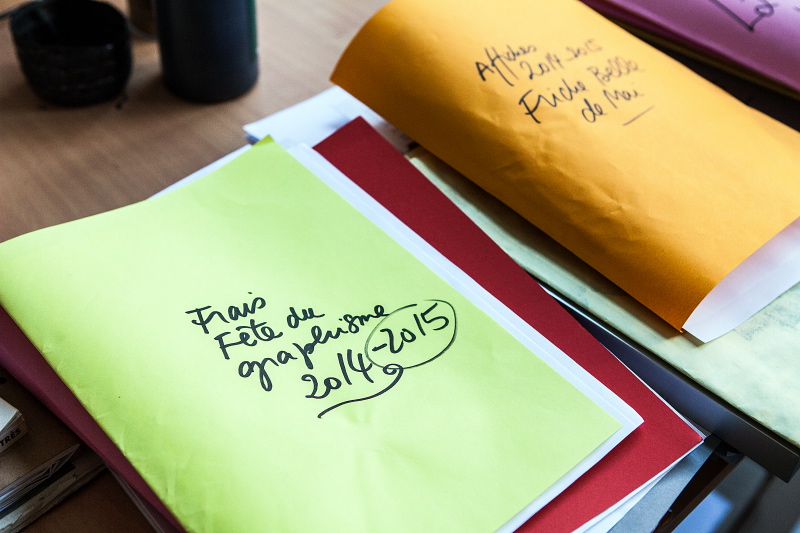 Affiches
2014-2015
Friche Belle
de Mai
Frais
Fête du
graphisme
2014-2015
TRÈS